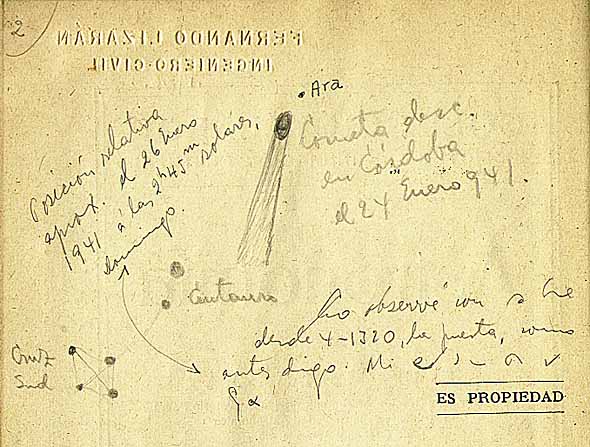 2
FERNANDO LIZARÁN
INGENIERO-CIVIL
Ara
Posición relativa
aprox. el 26 Enero
1941 á las 2h45m solares,
domingo.
Cometa desc.
en Córdoba
el 24 Enero 941.
Centauro
Lo observé con
desde 4-1320, la puerta, como
antes digo. Mi
Cruz
Sud
ES PROPIEDAD